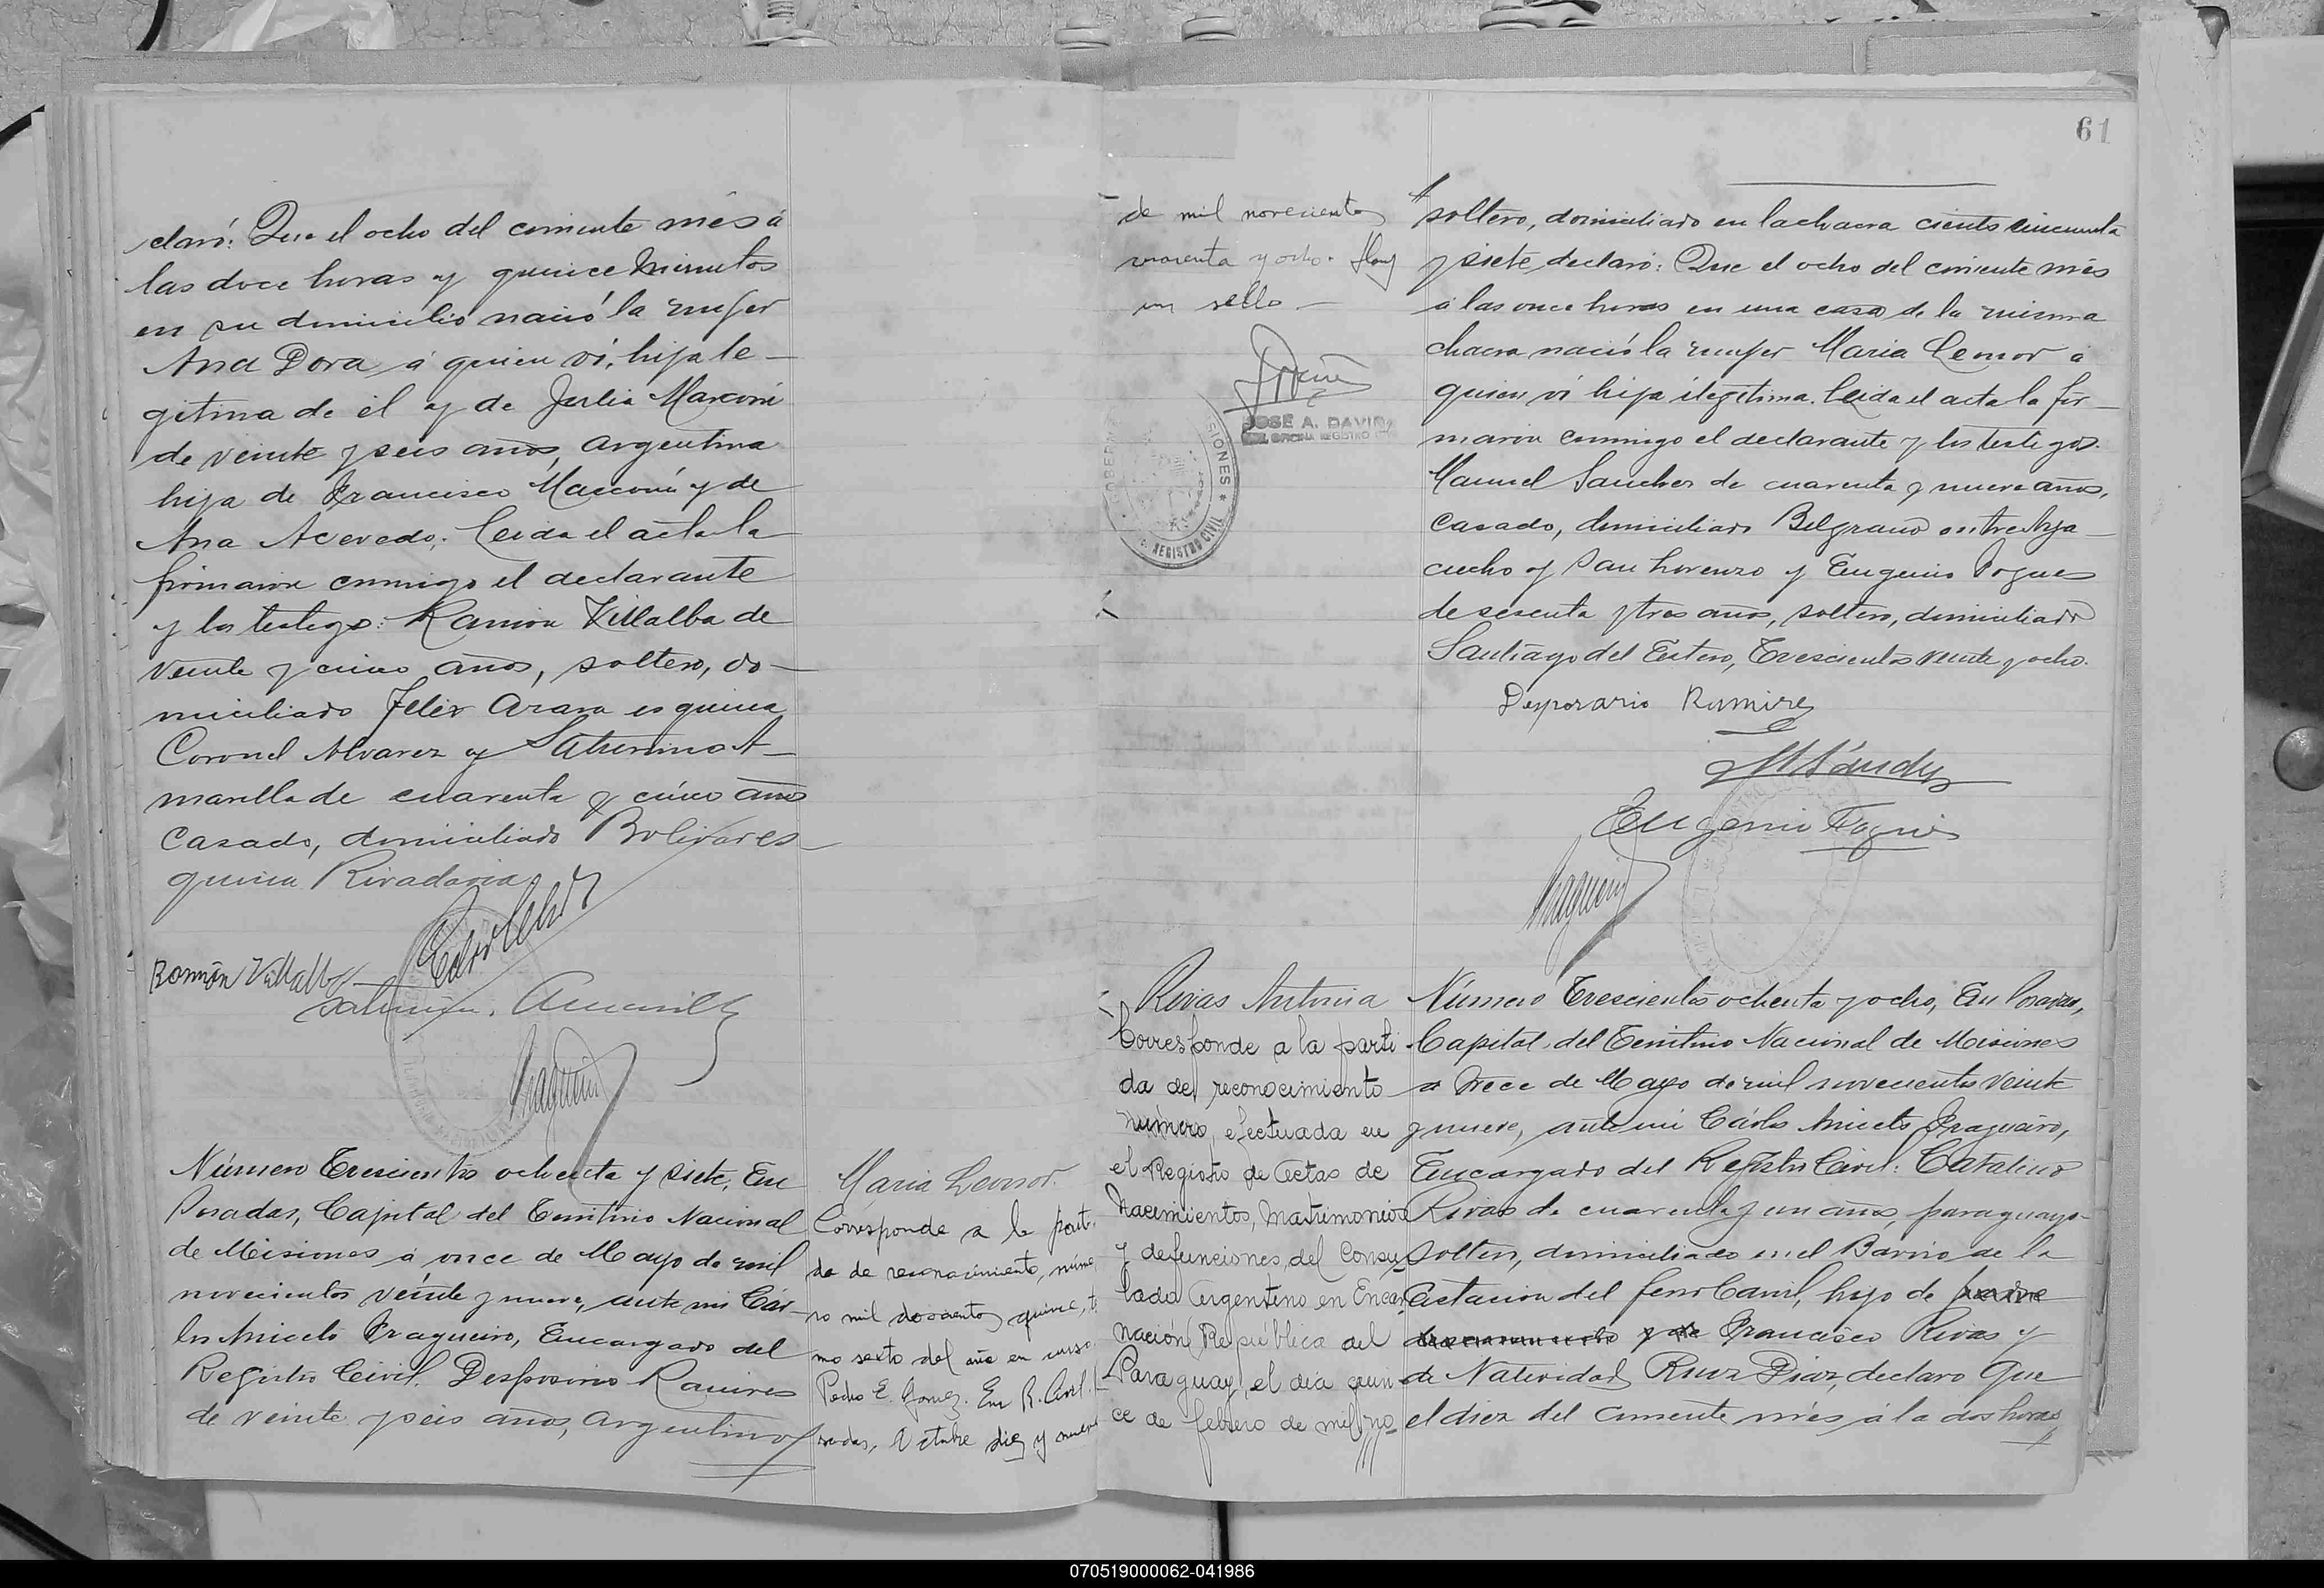 claró: Que el ocho del corriente mes á
las doce horas y quince minutos
en su domicilio nació la mujer
Ana Dora á quien ví, hija le-
gitima de él y de Julia Marconi
de veinte y seis años, argentina
hija de Francisco Marconi y de
Ana Acevedo; Leida el acta la
firmaron conmigo el declarante
y los testigos: Ramon Villalba de
veinte y cinco años, soltero, do-
miciliado Felix Azara esquina
Coronel Alvarez y Saturnino A-
marilla de cuarenta y cinco años
casado, domiciliado Bolivar es-
quina Rivadavia
Ramón Villalba
Número Trescientos ochenta y siete, En
Posadas, Capital del Territorio Nacional
de Misiones á once de Mayo de mil
novecientos veinte y nueve, ante mi Cár-
los Aniceto Fragueiro, Encargado del
Registro Civil. Desposorio Ramires
de veinte y seis años, argentino
Maria Leonor.
Corresponde a la parti-
da de reconocimiento, núme
ro mil doscientos quince, to
mo sexto del año en curso.
Pedro E. Gomez. Enc R. Civil.
sadas, Octubre diez y nueve
61
de mil novecientos
cuarenta y ocho. Hay
un sello -
JOSE A. DAVIÑA
OFICINA REGISTRO
SIONES * REGISTRO CIVIL
soltero, domiciliado en la chacra ciento cincuenta
y siete, declaró: Que el ocho del corriente mes
á las once horas en una casa de la misma
chacra nació la mujer Maria Leonor á
quien ví hija ilegitima. Leida el acta la fir-
maron conmigo el declarante y los testigos.
Manuel Sanchez de cuarenta y nueve años,
casado, domiciliado Belgrano entre Aya-
cucho y San Lorenzo y Eugenio Fogues
de sesenta y tres años, soltero, domiciliado
Santiago del Estero, Trescientos veinte y ocho.
Desposorio Ramirez
MSánchez
Eugenio Fogues
Rivas Antonia
Corresponde a la parti
da de reconocimiento
número, efectuada en
el Registro de Actas de
Nacimientos, Matrimonios
y defunciones, del Consu-
lado Argentino en Encar-
nación (República del
Paraguay), el día quin-
ce de febrero de mil no-
Número Trescientos ochenta y ocho, En Posadas,
Capital del Territorio Nacional de Misiones
a trece de Mayo de mil novecientos veinte
y nueve, ante mi Cárlos Aniceto Fragueiro,
Encargado del Registro Civil: Catalino
Rivas de cuarenta y un años, paraguayo
soltero, domiciliado en el Barrio de la
Estacion del ferro Carril, hijo de padre
desconocido y de Francisco Rivas y
de Natividad Ruiz Diaz, declaro Que
el diez del corriente mes á la dos horas
070519000062-041986